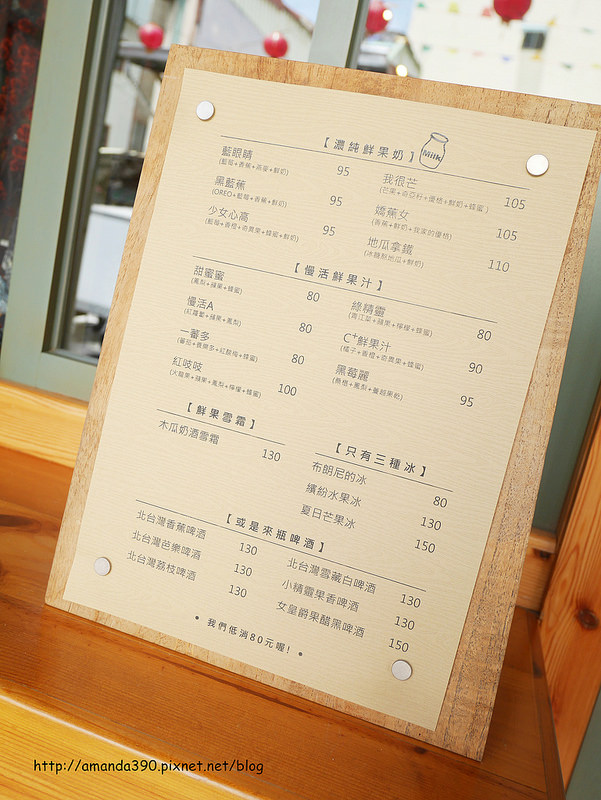 【濃純鮮果奶】
Milk
藍眼睛 95
(藍莓+香蕉+燕麥+鮮奶)
黑藍蕉 95
(OREO+藍莓+香蕉+鮮奶)
少女心高 95
(藍莓+香橙+奇異果+蜂蜜+鮮奶)
我很芒 105
(芒果+奇亞籽+優格+鮮奶+蜂蜜)
嬌蕉女 105
(香蕉+鮮奶+我家的優格)
地瓜拿鐵 110
(冰糖熬地瓜+鮮奶)
【慢活鮮果汁】
甜蜜蜜 80
(鳳梨+蘋果+蜂蜜)
慢活A 80
(紅蘿蔔+蘋果+鳳梨)
一蕃多 80
(蕃茄+養樂多+紅酸梅+蜂蜜)
紅吱吱 100
(火龍果+蘋果+鳳梨+檸檬+蜂蜜)
綠精靈 80
(青江菜+蘋果+檸檬+蜂蜜)
C⁺鮮果汁 90
(橘子+香橙+奇異果+蜂蜜)
黑莓麗 95
(桑椹+鳳梨+蔓越果乾)
【鮮果雪霜】
木瓜奶酒雪霜 130
【只有三種冰】
布朗尼的冰 80
繽紛水果冰 130
夏日芒果冰 150
【或是來瓶啤酒】
北台灣香蕉啤酒 130
北台灣芭樂啤酒 130
北台灣荔枝啤酒 130
北台灣雪藏白啤酒 130
小精靈果香啤酒 130
女皇爵果醋黑啤酒 150
• 我們低消80元喔! •
http://amanda390.pixnet.net/blog